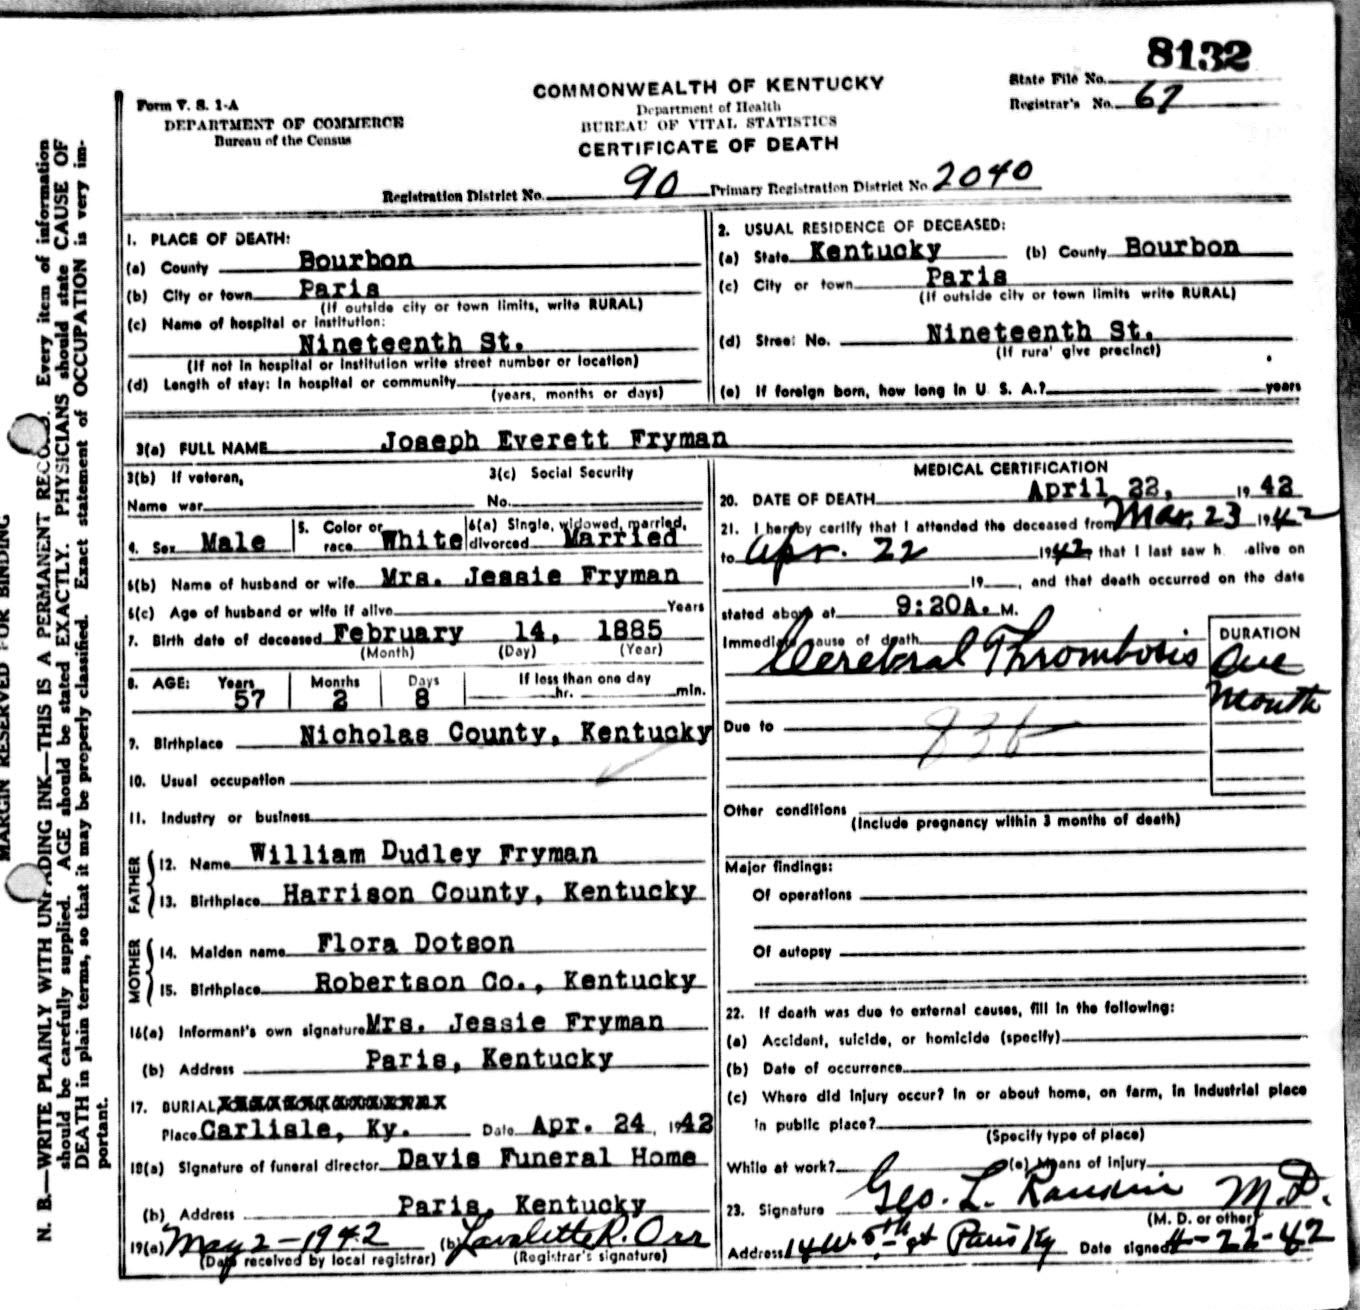 8132
State File No.
Registrar's No. 67
Form V. S. 1-A
DEPARTMENT OF COMMERCE
Bureau of the Census
COMMONWEALTH OF KENTUCKY
Department of Health
BUREAU OF VITAL STATISTICS
CERTIFICATE OF DEATH
Registration District No. 90 Primary Registration District No. 2040
MARGIN RESERVED FOR BINDING
N. B.—WRITE PLAINLY WITH UNFADING INK—THIS IS A PERMANENT RECORD. Every item of information
should be carefully supplied. AGE should be stated EXACTLY. PHYSICIANS should state CAUSE OF
DEATH in plain terms, so that it may be properly classified. Exact statement of OCCUPATION is very im-
portant.
1. PLACE OF DEATH:
(a) County Bourbon
(b) City or town Paris
(If outside city or town limits, write RURAL)
(c) Name of hospital or institution:
Nineteenth St.
(If not in hospital or institution write street number or location)
(d) Length of stay: In hospital or community
(years, months or days)
2. USUAL RESIDENCE OF DECEASED:
(a) State Kentucky (b) County Bourbon
(c) City or town Paris
(If outside city or town limits write RURAL)
(d) Street No. Nineteenth St.
(If rural give precinct)
(e) If foreign born, how long in U. S. A.? years
3(a) FULL NAME Joseph Everett Fryman
3(b) If veteran, 3(c) Social Security
Name war No.
4. Sex Male 5. Color or race White 6(a) Single, widowed, married, divorced Married
6(b) Name of husband or wife Mrs. Jessie Fryman
6(c) Age of husband or wife if alive Years
7. Birth date of deceased February 14, 1885
(Month) (Day) (Year)
8. AGE: Years Months Days If less than one day
57 2 8 hr. min.
9. Birthplace Nicholas County, Kentucky
10. Usual occupation
11. Industry or business
FATHER
12. Name William Dudley Fryman
13. Birthplace Harrison County, Kentucky
MOTHER
14. Maiden name Flora Dotson
15. Birthplace Robertson Co., Kentucky
16(a) Informant's own signature Mrs. Jessie Fryman
(b) Address Paris, Kentucky
17. BURIAL
Place Carlisle, Ky. Date Apr. 24, 1942
18(a) Signature of funeral director Davis Funeral Home
(b) Address Paris, Kentucky
19(a) May 2-1942 (b) Lavalette R. Orr
(Date received by local registrar) (Registrar's signature)
MEDICAL CERTIFICATION
20. DATE OF DEATH April 22, 1942
21. I hereby certify that I attended the deceased from Mar. 23 1942
to Apr. 22 1942, that I last saw h alive on
19 , and that death occurred on the date
stated above at 9:20A. M.
Immediate cause of death DURATION
Cerebral Thrombosis One
Month
Due to 83b
Other conditions
(Include pregnancy within 3 months of death)
Major findings:
Of operations
Of autopsy
22. If death was due to external causes, fill in the following:
(a) Accident, suicide, or homicide (specify)
(b) Date of occurrence
(c) Where did injury occur? In or about home, on farm, in industrial place
in public place?
(Specify type of place)
While at work? (e) Means of injury
23. Signature Geo. L. M.D.
(M. D. or other)
Address 14 W. 5th st Paris Ky Date signed 4-22-42